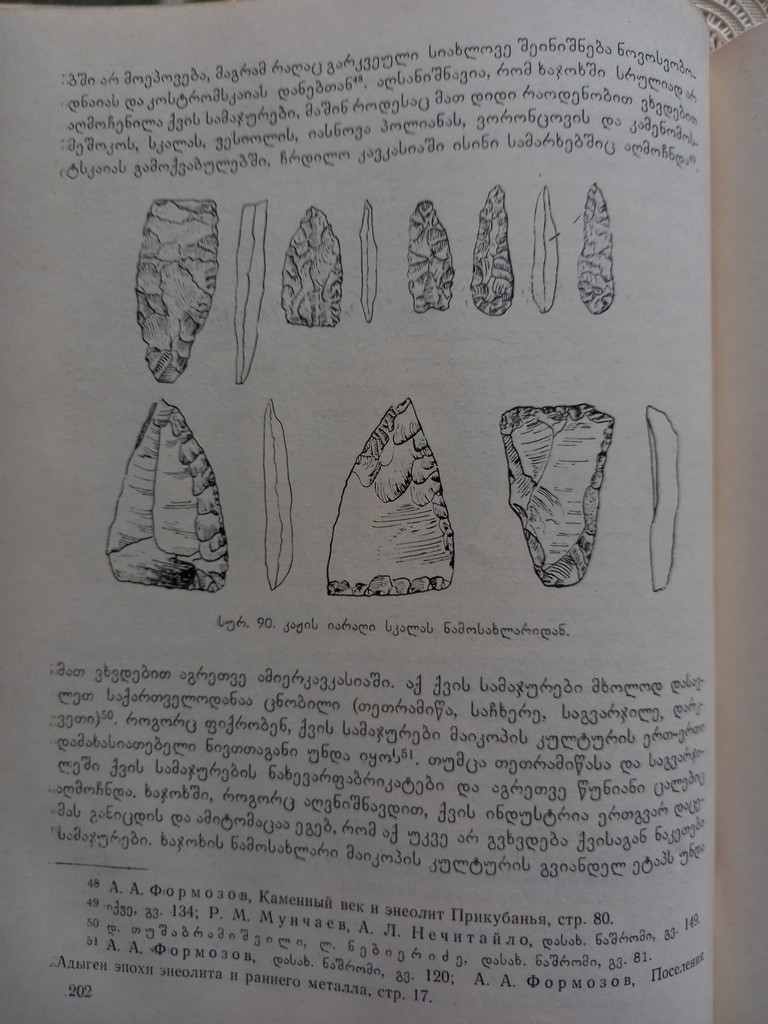 ბში არ მოეპოვება, მაგრამ რაღაც გარკვეული სიახლოვე შეინიშნება ნოვოსვობო-
დნაიას და კოსტრომსკაიას დანებთან⁴⁸. აღსანიშნავია, რომ ხაჯოხში სრულიად არ
აღმოჩენილა ქვის სამაჯურები, მაშინ როდესაც მათ დიდი რაოდენობით ვხვდებით
მეშოკოს, სკალას, ვესიოლის, იასნოვა პოლიანას, ვორონცოვის და კამენომოს-
ტსკაიას გამოქვაბულებში, ჩრდილო კავკასიაში ისინი სამარხებშიც აღმოჩნდა⁴⁹
სურ. 90. კაჟის იარაღი სკალას ნამოსახლარიდან.
მათ ვხვდებით აგრეთვე ამიერკავკასიაში. აქ ქვის სამაჯურები მხოლოდ დასავ-
ლეთ საქართველოდანაა ცნობილი (თეთრამიწა, საჩხერე, საგვარჯილე, დარ-
ვეთი)⁵⁰. როგორც ფიქრობენ, ქვის სამაჯურები მაიკოპის კულტურის ერთ-ერთი
დამახასიათებელი ნივთთაგანი უნდა იყოს⁵¹. თუმცა თეთრამიწასა და საგვარჯი-
ლეში ქვის სამაჯურების ნახევარფაბრიკატები და აგრეთვე წუნიანი ცალებიც
აღმოჩნდა. ხაჯოხში, როგორც აღვნიშნავდით, ქვის ინდუსტრია ერთგვარ დაცე-
მას განიცდის და ამიტომაცაა ეგებ, რომ აქ უკვე არ გვხვდება ქვისაგან ნაკეთები
სამაჯურები. ხაჯოხის ნამოსახლარი მაიკოპის კულტურის გვიანდელ ეტაპს უნდა
⁴⁸ А. А. Формозов, Каменный век и энеолит Прикубанья, стр. 80.
⁴⁹ იქვე, გვ. 134; Р. М. Мунчаев, А. Л. Нечитайло, დასახ. ნაშრომი, გვ. 149.
⁵⁰ დ. თუშაბრამიშვილი, ლ. ნებიერიძე, დასახ. ნაშრომი, გვ. 81.
⁵¹ А. А. Формозов, დასახ. ნაშრომი, გვ. 120; А. А. Формозов, Поселения
Адыгеи эпохи энеолита и раннего металла, стр. 17.
202